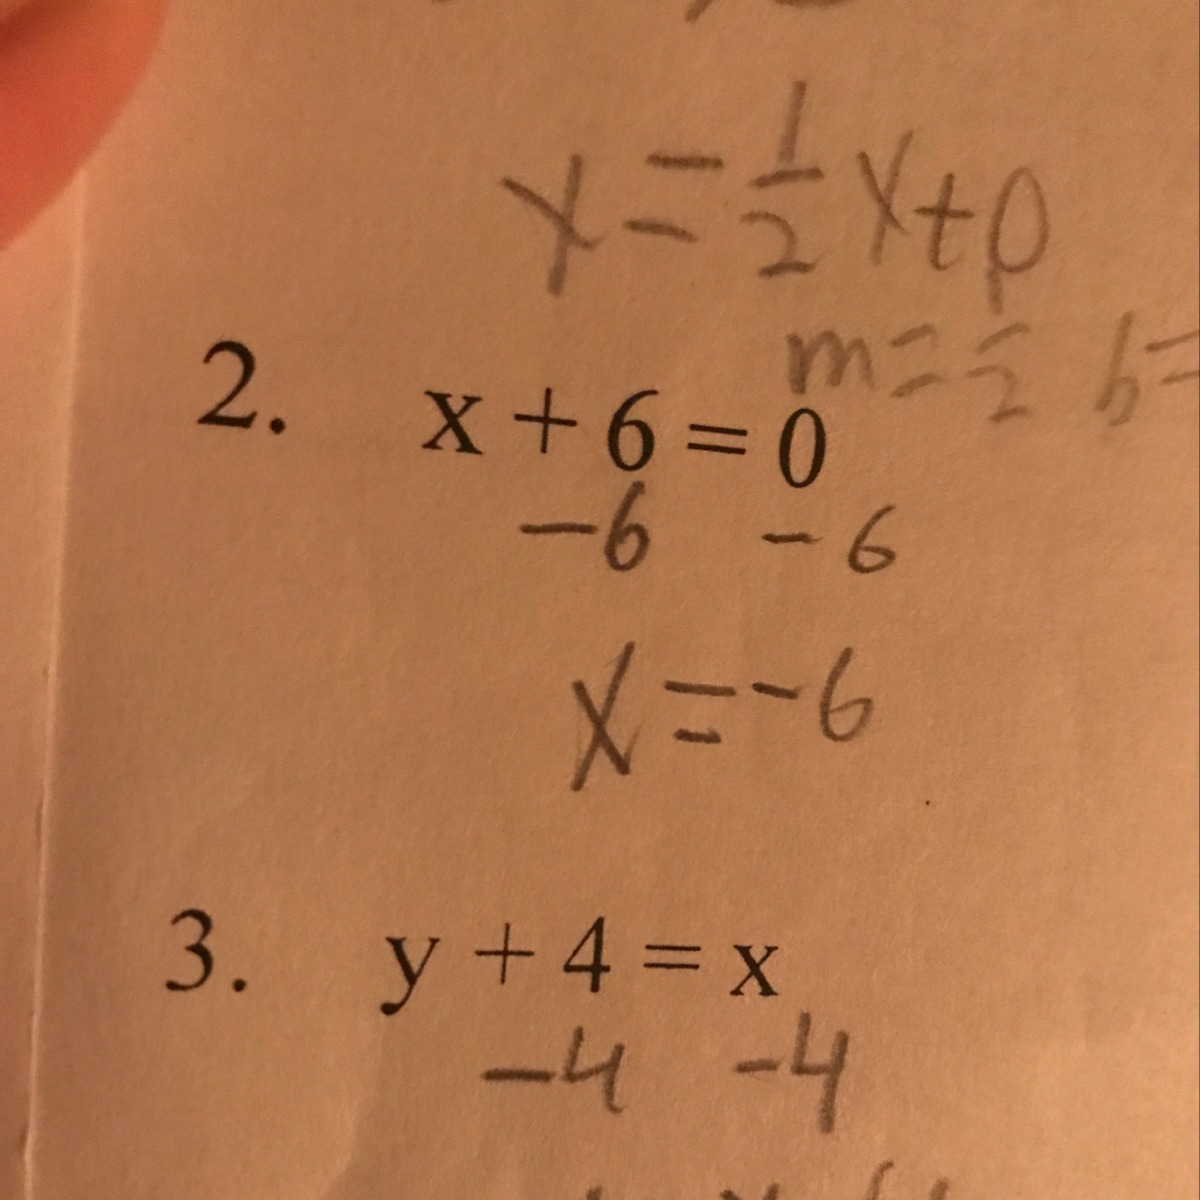 y = 1/2 x + 0
m = 1/2 b =
2. x + 6 = 0
-6 -6
x = -6
3. y + 4 = x
-4 -4